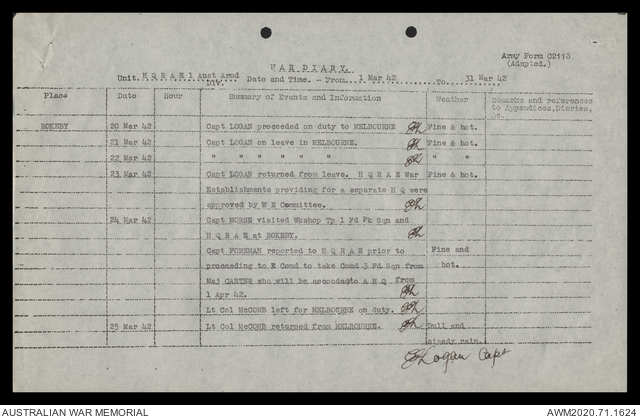 Army Form C2118
(Adapted.)
WAR DIARY.
Unit. H Q R A E 1 Aust Armd Div. Date and Time. - From. 1 Mar 42 To. 31 Mar 42
Place Date Hour Summary of Events and Information Weather Remarks and references to Appendices, Diaries, &c.
ROKEBY 20 Mar 42 Capt LOGAN proceeded on duty to MELBOURNE Fine & hot.
21 Mar 42 Capt LOGAN on leave in MELBOURNE. Fine & hot.
22 Mar 42 " " " " " " " "
23 Mar 42 Capt LOGAN returned from leave. H Q R A E War Fine & hot.
Establishments providing for a separate H Q were
approved by W E Committee.
24 Mar 42 Capt MORSE visited Wkshop Tp 1 Fd Pk Sqn and
H Q R A E at ROKEBY.
Capt FOREMAN reported to H Q R A E prior to Fine and
proceeding to E Comd to take Comd 3 Fd Sqn from hot.
Maj CARTER who will be seconded to A H Q from
1 Apr 42.
Lt Col McCOMB left for MELBOURNE on duty.
25 Mar 42 Lt Col McCOMB returned from MELBOURNE. Dull and
steady rain.
Logan Capt
AUSTRALIAN WAR MEMORIAL AWM2020.71.1624